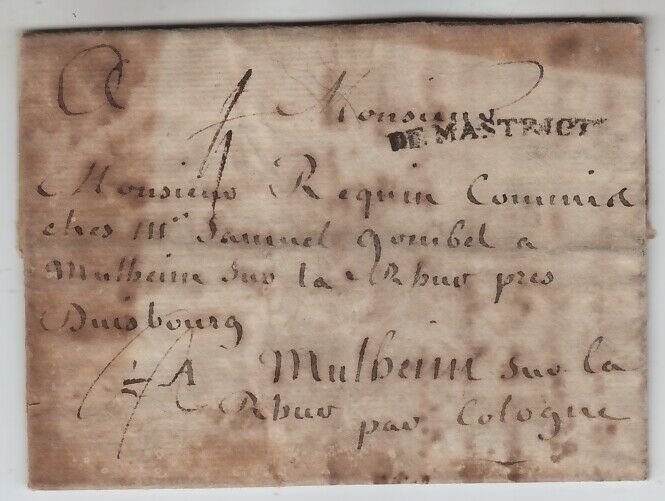 A
Monsieur
DE MASTRICT
Monsieur Requin Commis
ches Mr. Samuel gombel a
Mulheim sur la Rhur pres
Duisbourg
A Mulheim sur la
Rhur par Cologne